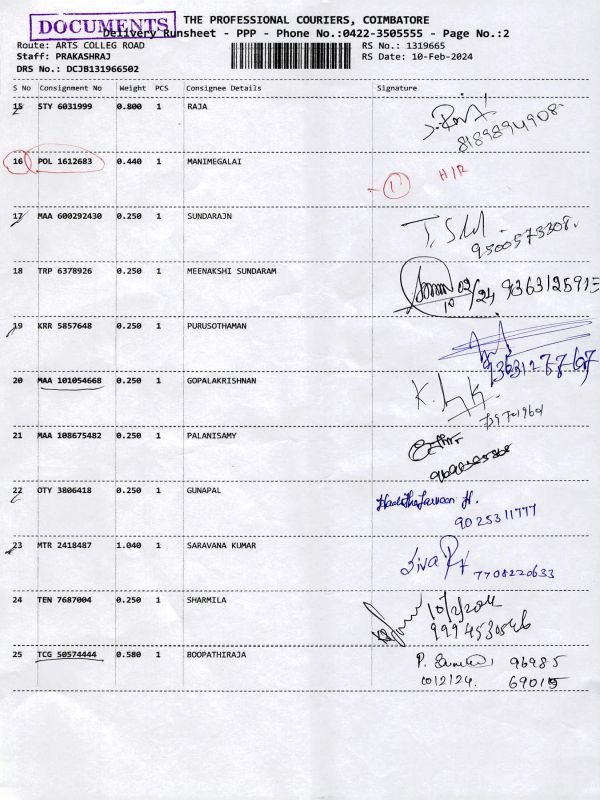 DOCUMENTS
THE PROFESSIONAL COURIERS, COIMBATORE
Delivery Runsheet - PPP - Phone No.:0422-3505555 - Page No.:2
Route: ARTS COLLEG ROAD RS No.: 1319665
Staff: PRAKASHRAJ RS Date: 10-Feb-2024
DRS No.: DCJB131966502
S No Consignment No Weight PCS Consignee Details Signature
15 STY 6031999 0.800 1 RAJA
8189894908
16 POL 1612683 0.440 1 MANIMEGALAI
1 H/R
17 MAA 600292430 0.250 1 SUNDARAJN
9500573308
18 TRP 6378926 0.250 1 MEENAKSHI SUNDARAM
19 KRR 5857648 0.250 1 PURUSOTHAMAN
20 MAA 101054668 0.250 1 GOPALAKRISHNAN
21 MAA 108675482 0.250 1 PALANISAMY
22 OTY 3806418 0.250 1 GUNAPAL
9025311777
23 MTR 2418487 1.040 1 SARAVANA KUMAR
7708220633
24 TEN 7687004 0.250 1 SHARMILA
9994530546
25 TCG 50574444 0.580 1 BOOPATHIRAJA
96985
69015